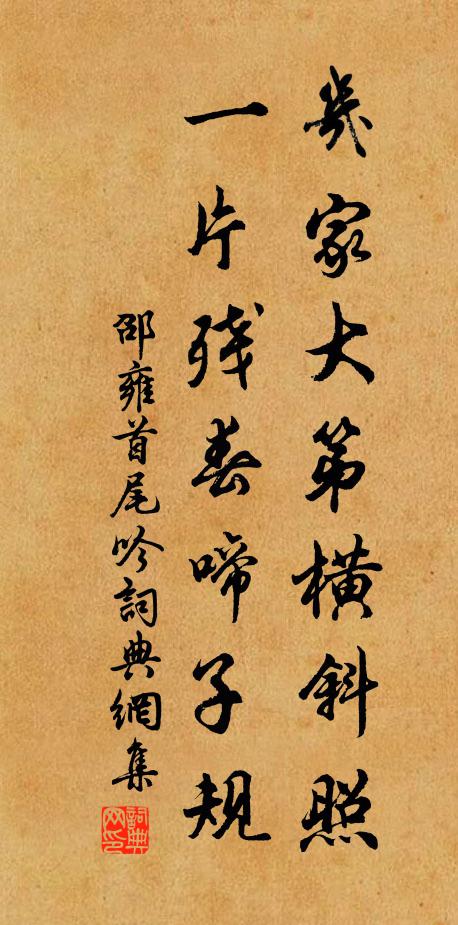 幾家大第橫斜照
一片殘春啼子規
邵雍首尾吟詞典網集
詞典網印